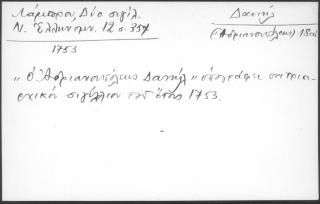 Λάμπρου, Δύο σιγίλ.
Ν. Ἑλληνομν. 12 σ. 354
1753
Δανιήλ
(Ἀδριανουπόλεως) 18ος
"Ὁ Ἀδριανουπόλεως Δανιήλ" ὑπογράφει πατρια-
ρχικόν σιγίλλιον τοῦ ἔτους 1753.